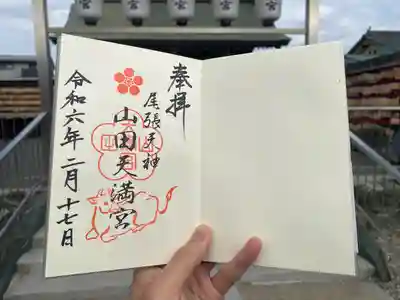 宮
宮
宮
奉拝
尾張天神
山田天満宮
令和六年二月十七日